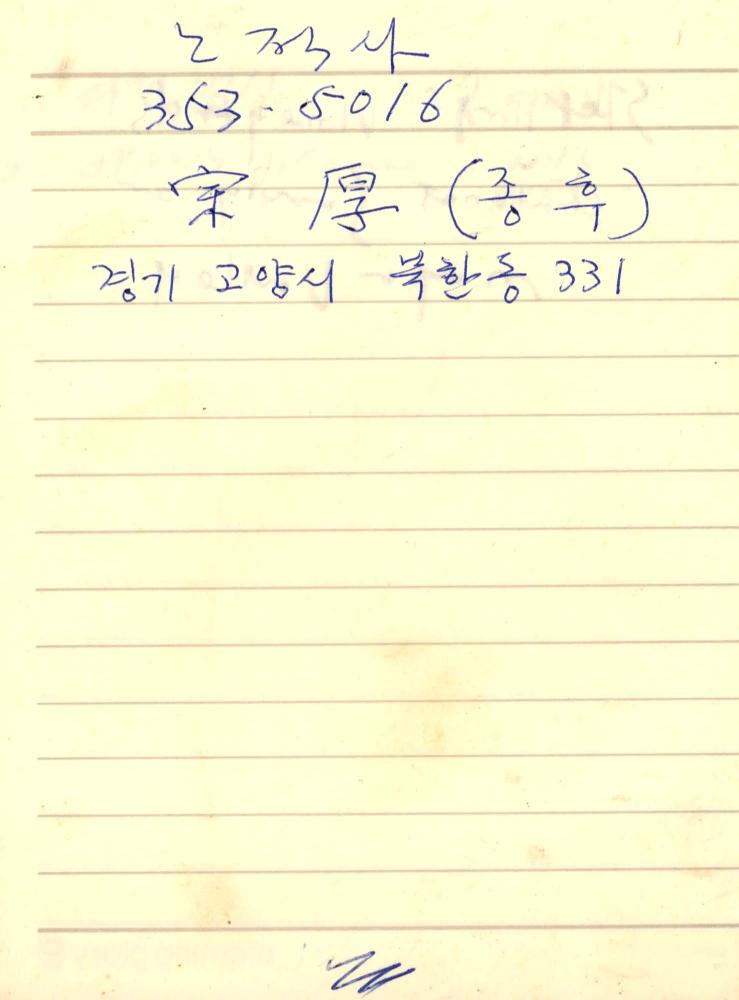 노적사
353-5016
宗 厚 (종 후)
경기 고양시 북한동 331